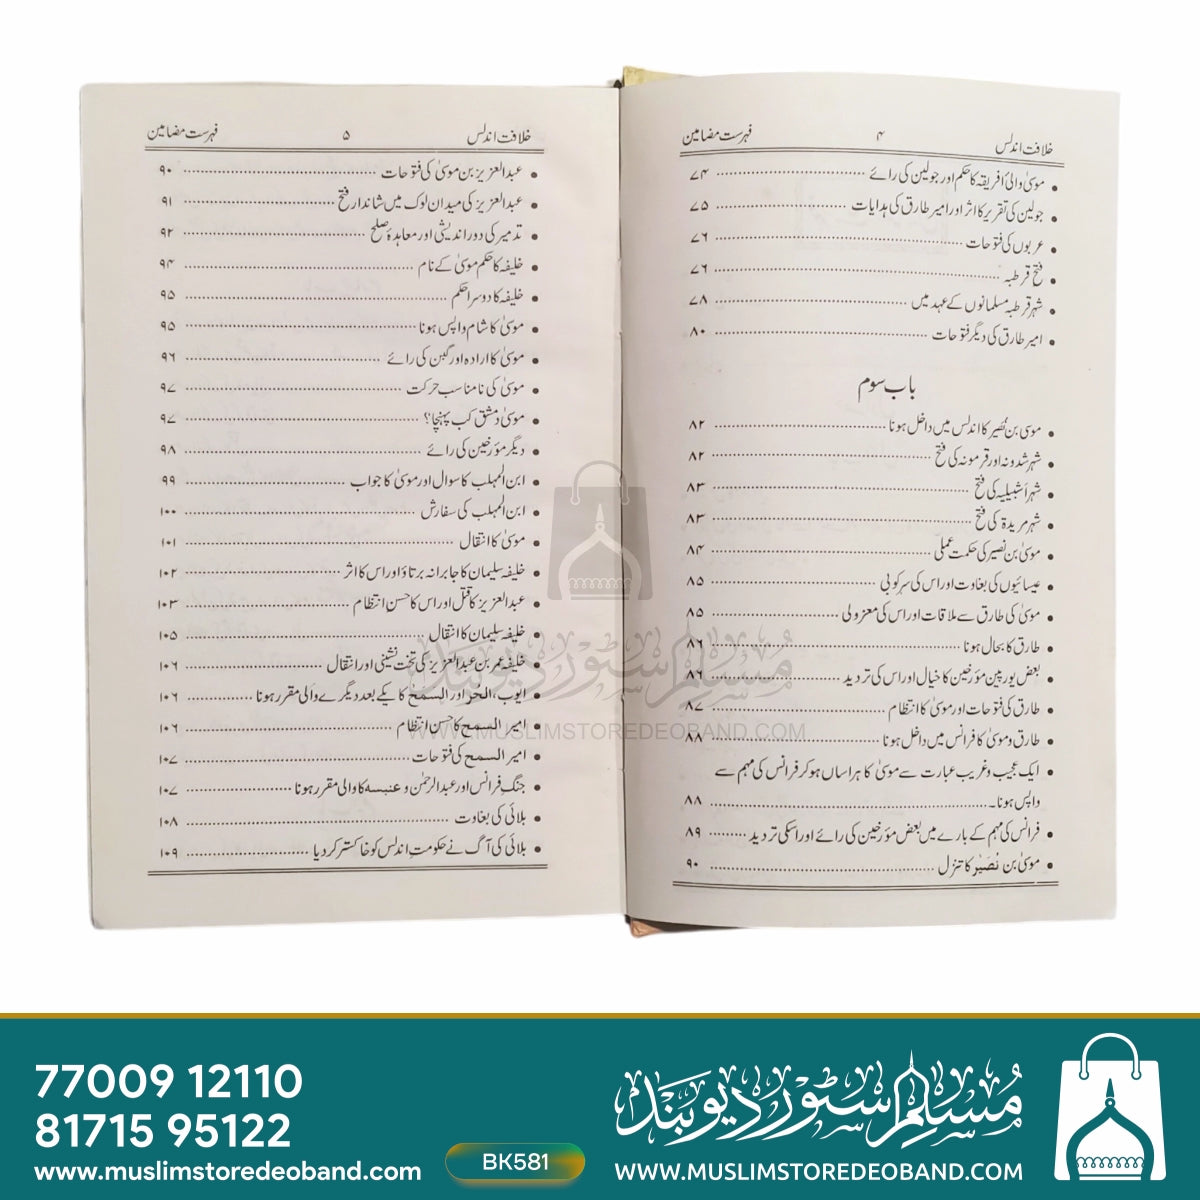 خلافت اندلس ۴ فہرست مضامین
• موسیٰ والیٔ افریقہ کا حکم اور جولین کی رائے ۷۴
• جولین کی تقریر کا اثر اور امیر طارق کی ہدایات ۷۵
• عربوں کی فتوحات ۷۶
• فتح قرطبہ ۷۶
• شہر قرطبہ مسلمانوں کے عہد میں ۷۸
• امیر طارق کی دیگر فتوحات ۸۰
باب سوم
• موسیٰ بن نُصیر کا اندلس میں داخل ہونا ۸۲
• شہر شدونہ اور قرمونہ کی فتح ۸۲
• شہر اَشبیلیہ کی فتح ۸۳
• شہر مریدۃ کی فتح ۸۳
• موسیٰ بن نصیر کی حکمت عملی ۸۴
• عیسائیوں کی بغاوت اور اس کی سرکوبی ۸۵
• موسیٰ کی طارق سے ملاقات اور اس کی معزولی ۸۵
• طارق کا بحال ہونا ۸۶
• بعض یورپین مؤرخین کا خیال اور اس کی تردید ۸۶
• طارق کی فتوحات اور موسیٰ کا انتظام ۸۷
• طارق و موسیٰ کا فرانس میں داخل ہونا ۸۸
• ایک عجیب و غریب عبارت سے موسیٰ کا ہراساں ہو کر فرانس کی مہم سے
واپس ہونا۔ ۸۸
• فرانس کی مہم کے بارے میں بعض مؤرخین کی رائے اور اسکی تردید ۸۹
• موسیٰ بن نُصَیْر کا تنزل ۹۰
خلافت اندلس ۵ فہرست مضامین
• عبدالعزیز بن موسیٰ کی فتوحات ۹۰
• عبدالعزیز کی میدان لوک میں شاندار فتح ۹۱
• تدمیر کی دور اندیشی اور معاہدۂ صلح ۹۲
• خلیفہ کا حکم موسیٰ کے نام ۹۴
• خلیفہ کا دوسرا حکم ۹۵
• موسیٰ کا شام واپس ہونا ۹۵
• موسیٰ کا ارادہ اور گبن کی رائے ۹۶
• موسیٰ کی نامناسب حرکت ۹۷
• موسیٰ دمشق کب پہنچا؟ ۹۷
• دیگر مؤرخین کی رائے ۹۸
• ابن المہلب کا سوال اور موسیٰ کا جواب ۹۹
• ابن المہلب کی سفارش ۱۰۰
• موسیٰ کا انتقال ۱۰۱
• خلیفہ سلیمان کا جابرانہ برتاؤ اور اس کا اثر ۱۰۲
• عبدالعزیز کا قتل اور اس کا حسنِ انتظام ۱۰۳
• خلیفہ سلیمان کا انتقال ۱۰۵
• خلیفہ عمر بن عبدالعزیز کی تخت نشینی اور انتقال ۱۰۶
• ایوب، الحُر اور السمح کا یکے بعد دیگرے وَالی مقرر ہونا ۱۰۶
• امیر السمح کا حسنِ انتظام ۱۰۶
• امیر السمح کی فتوحات ۱۰۷
• جنگِ فرانس اور عبدالرحمٰن و عنبسہ کا والی مقرر ہونا ۱۰۷
• بلائی کی بغاوت ۱۰۸
• بلائی کی آگ نے حکومتِ اندلس کو خاکستر کر دیا ۱۰۹
مُسلم سٹور دیوبند
WWW.MUSLIMSTOREDEOBAND.COM
77009 12110
81715 95122
www.muslimstoredeoband.com
BK581
مُسلم سٹور دیوبند
WWW.MUSLIMSTOREDEOBAND.COM